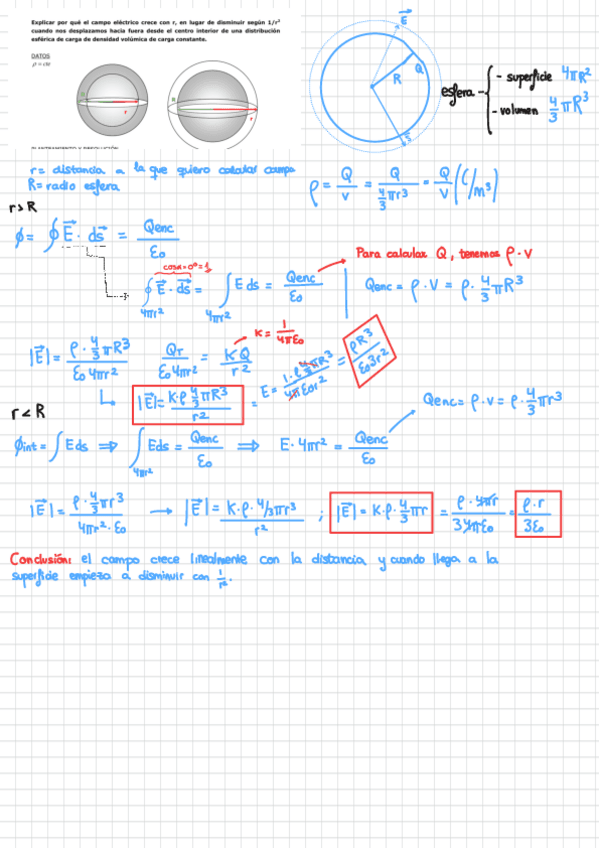 Explicar por qué el campo eléctrico crece con r, en lugar de disminuir según 1/r²
cuando nos desplazamos hacia fuera desde el centro interior de una distribución
esférica de carga de densidad volúmica de carga constante.
DATOS
ρ = cte
R r
R r
E
R Q
S
esfera - superficie 4πR²
- volumen 4/3 πR³
r = distancia a la que quiero calcular campo
R = radio esfera
ρ = Q/V = Q/(4/3 πr³) = Q/V (C/m³)
r > R
φ = ∮ E · ds = Qenc/ε₀
Para calcular Q, tenemos ρ · V
cos α = 0° = 1
∮ E · ds = ∫ E ds = Qenc/ε₀
4πr² 4πr²
Qenc = ρ · V = ρ · 4/3 πR³
K = 1/4πε₀
|E| = ρ · 4/3 πR³ / ε₀ 4πr² Qr / ε₀ 4πr² = KQ/r²
|E| = K · ρ 4/3 πR³ / r² = E = 1 · ρ 4/3 πR³ / 4π ε₀ r² = ρR³/ε₀3r²
r < R
Qenc = ρ · V = ρ · 4/3 πr³
φint = ∫ E ds ⇒ ∫ E ds = Qenc/ε₀ ⇒ E · 4πr² = Qenc/ε₀
4πr²
|E| = ρ · 4/3 πr³ / 4πr² · ε₀ → |E| = K · ρ · 4/3 πr³ / r² ; |E| = K · ρ · 4/3 πr = ρ · 4πr / 3 4πε₀ = ρ · r / 3ε₀
Conclusión: el campo crece linealmente con la distancia y cuando llega a la
superficie empieza a disminuir con 1/r².